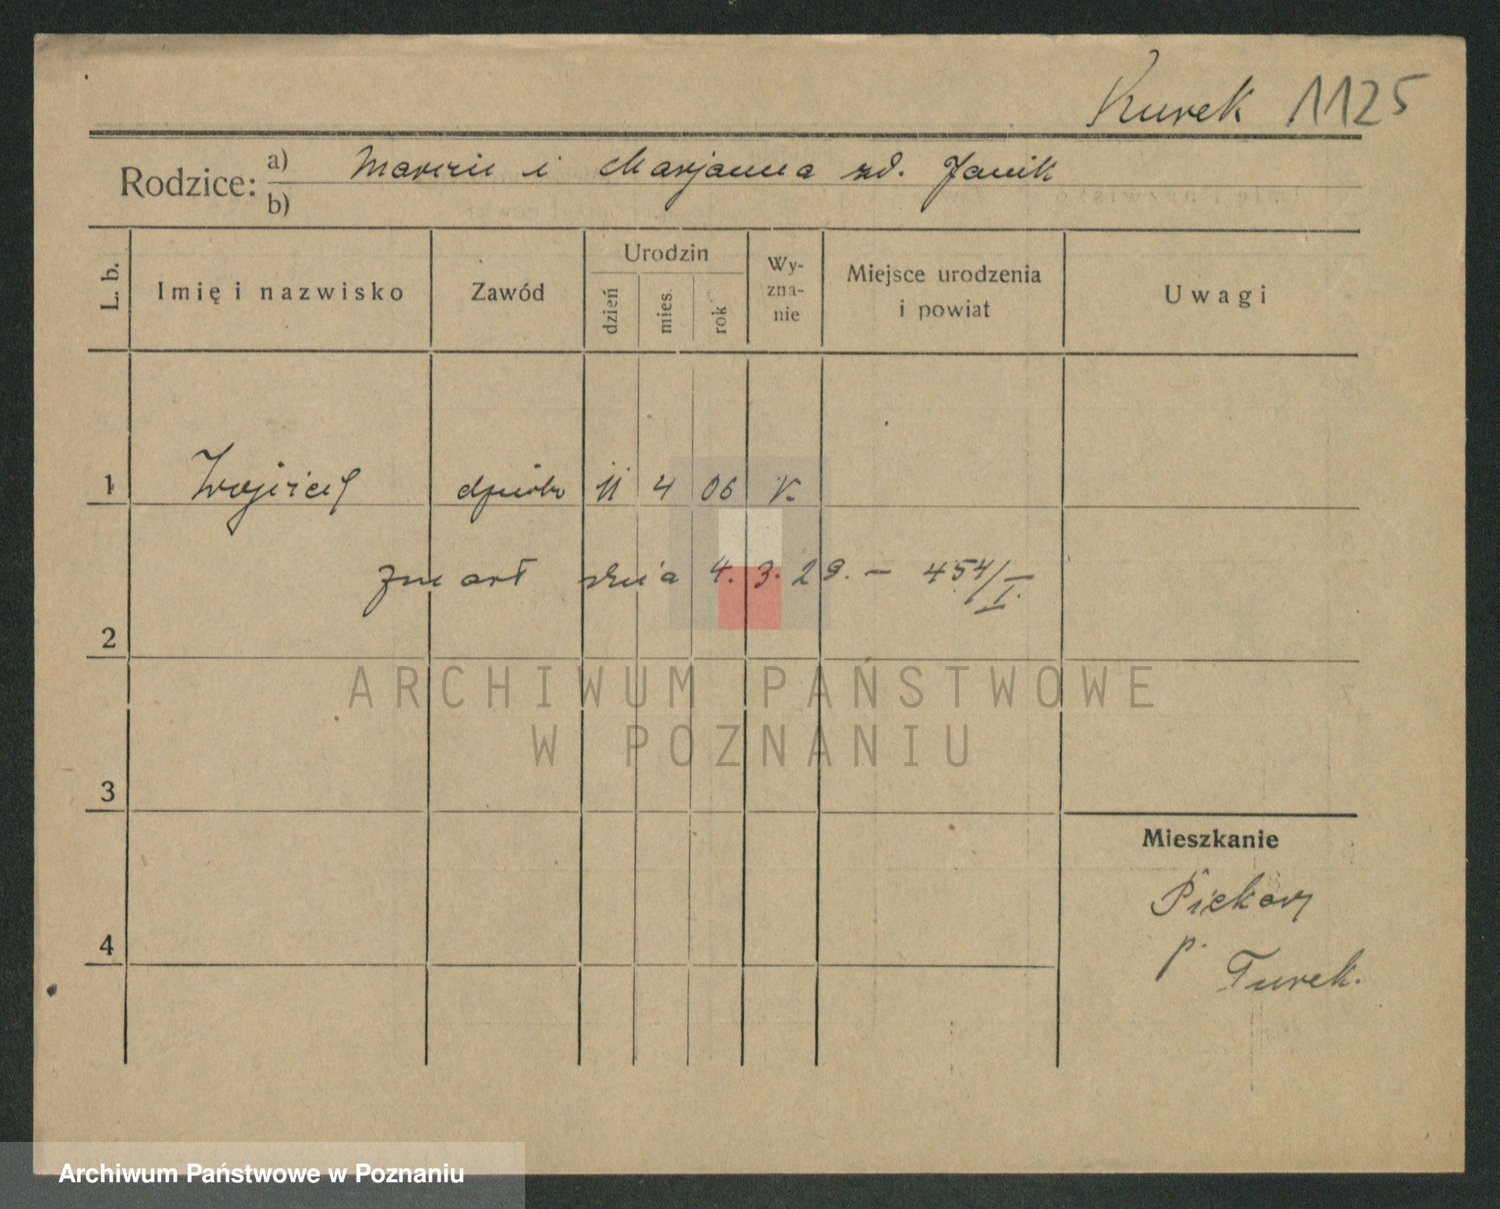 Kurek 1125
Rodzice: a) Marcin i Marjanna zd. Janik
b)
L. b.
Imię i nazwisko
Zawód
Urodzin
dzień
mies.
rok
Wy-
zna-
nie
Miejsce urodzenia
i powiat
Uwagi
1 Wojciech 11 4 06 k.
zmarł dnia 4.3.29. – 454/I.
2
ARCHIWUM PAŃSTWOWE
W POZNANIU
3
Mieszkanie
Piekary
p. Turek.
4
Archiwum Państwowe w Poznaniu